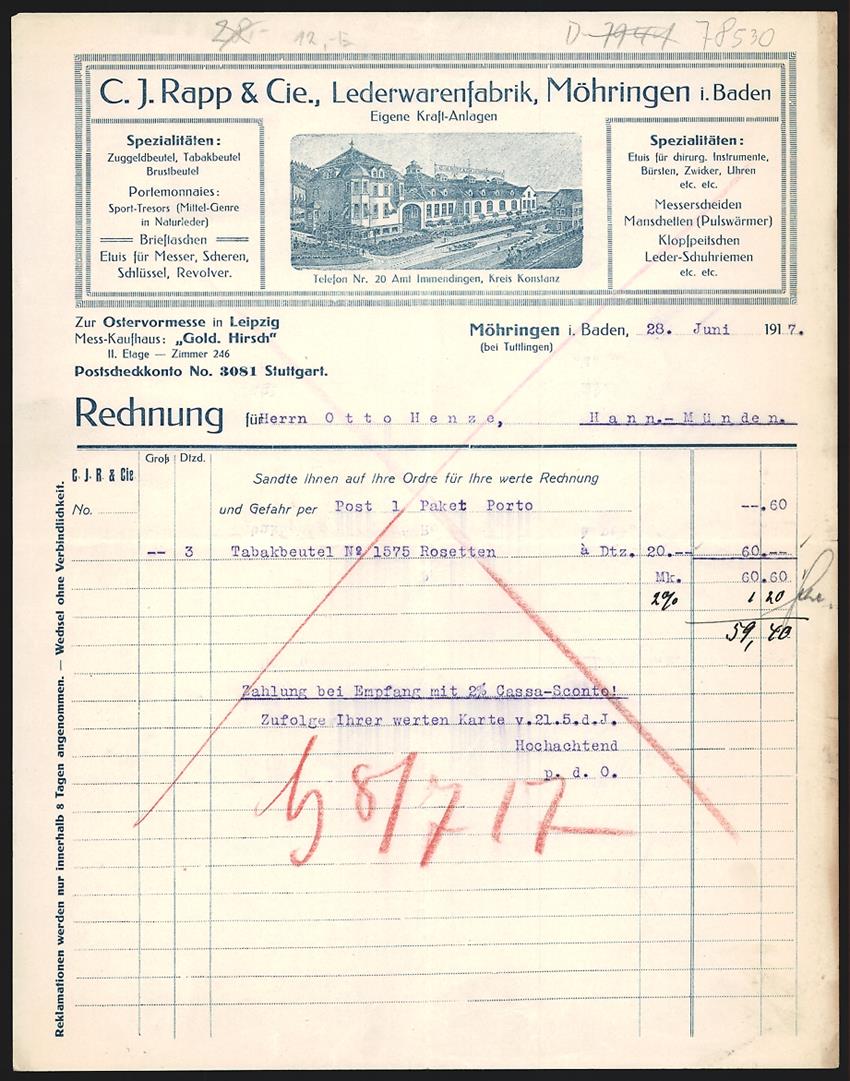 12,-
D-7944 78530
C. J. Rapp & Cie., Lederwarenfabrik, Möhringen i. Baden
Eigene Kraft-Anlagen
Spezialitäten:
Zuggeldbeutel, Tabakbeutel
Brustbeutel
Portemonnaies:
Sport-Tresors (Mittel-Genre
in Naturleder)
Brieftaschen
Etuis für Messer, Scheren,
Schlüssel, Revolver.
Telefon Nr. 20 Amt Immendingen, Kreis Konstanz
Spezialitäten:
Etuis für chirurg. Instrumente,
Bürsten, Zwicker, Uhren
etc. etc.
Messerscheiden
Manschetten (Pulswärmer)
Klopfpeitschen
Leder-Schuhriemen
etc. etc.
Zur Ostervormesse in Leipzig
Mess-Kaufhaus: „Gold. Hirsch"
II. Etage — Zimmer 246
Postscheckkonto No. 3081 Stuttgart.
Möhringen i. Baden, 28. Juni 1917.
(bei Tuttlingen)
Rechnung für Herrn Otto Henze, Hann.-Münden.
Groß Dtzd.
C. J. R. & Cie
Sandte Ihnen auf Ihre Ordre für Ihre werte Rechnung
No. und Gefahr per Post 1 Paket Porto --.60
-- 3 Tabakbeutel Nº 1575 Rosetten à Dtz. 20.-- 60.--
Mk. 60.60
2% 1 20
59,40
Zahlung bei Empfang mit 2% Cassa-Sconto!
Zufolge Ihrer werten Karte v.21.5.d.J.
Hochachtend
p. d. O.
8/7 17
Reklamationen werden nur innerhalb 8 Tagen angenommen. — Wechsel ohne Verbindlichkeit.